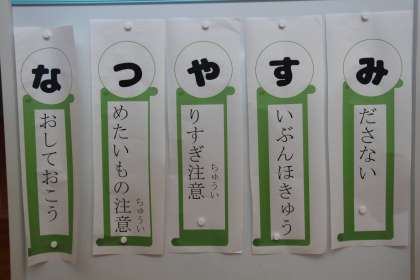 な
おしておこう
つ
めたいもの注意
ちゅうい
や
りすぎ注意
ちゅうい
す
いぶんほきゅう
み
ださない